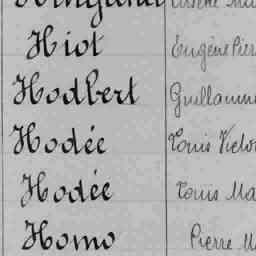 Hiot Eugène Pier
Hodbert Guillaume
Hodée Louis Victo
Hodée Louis Ma
Homo Pierre M